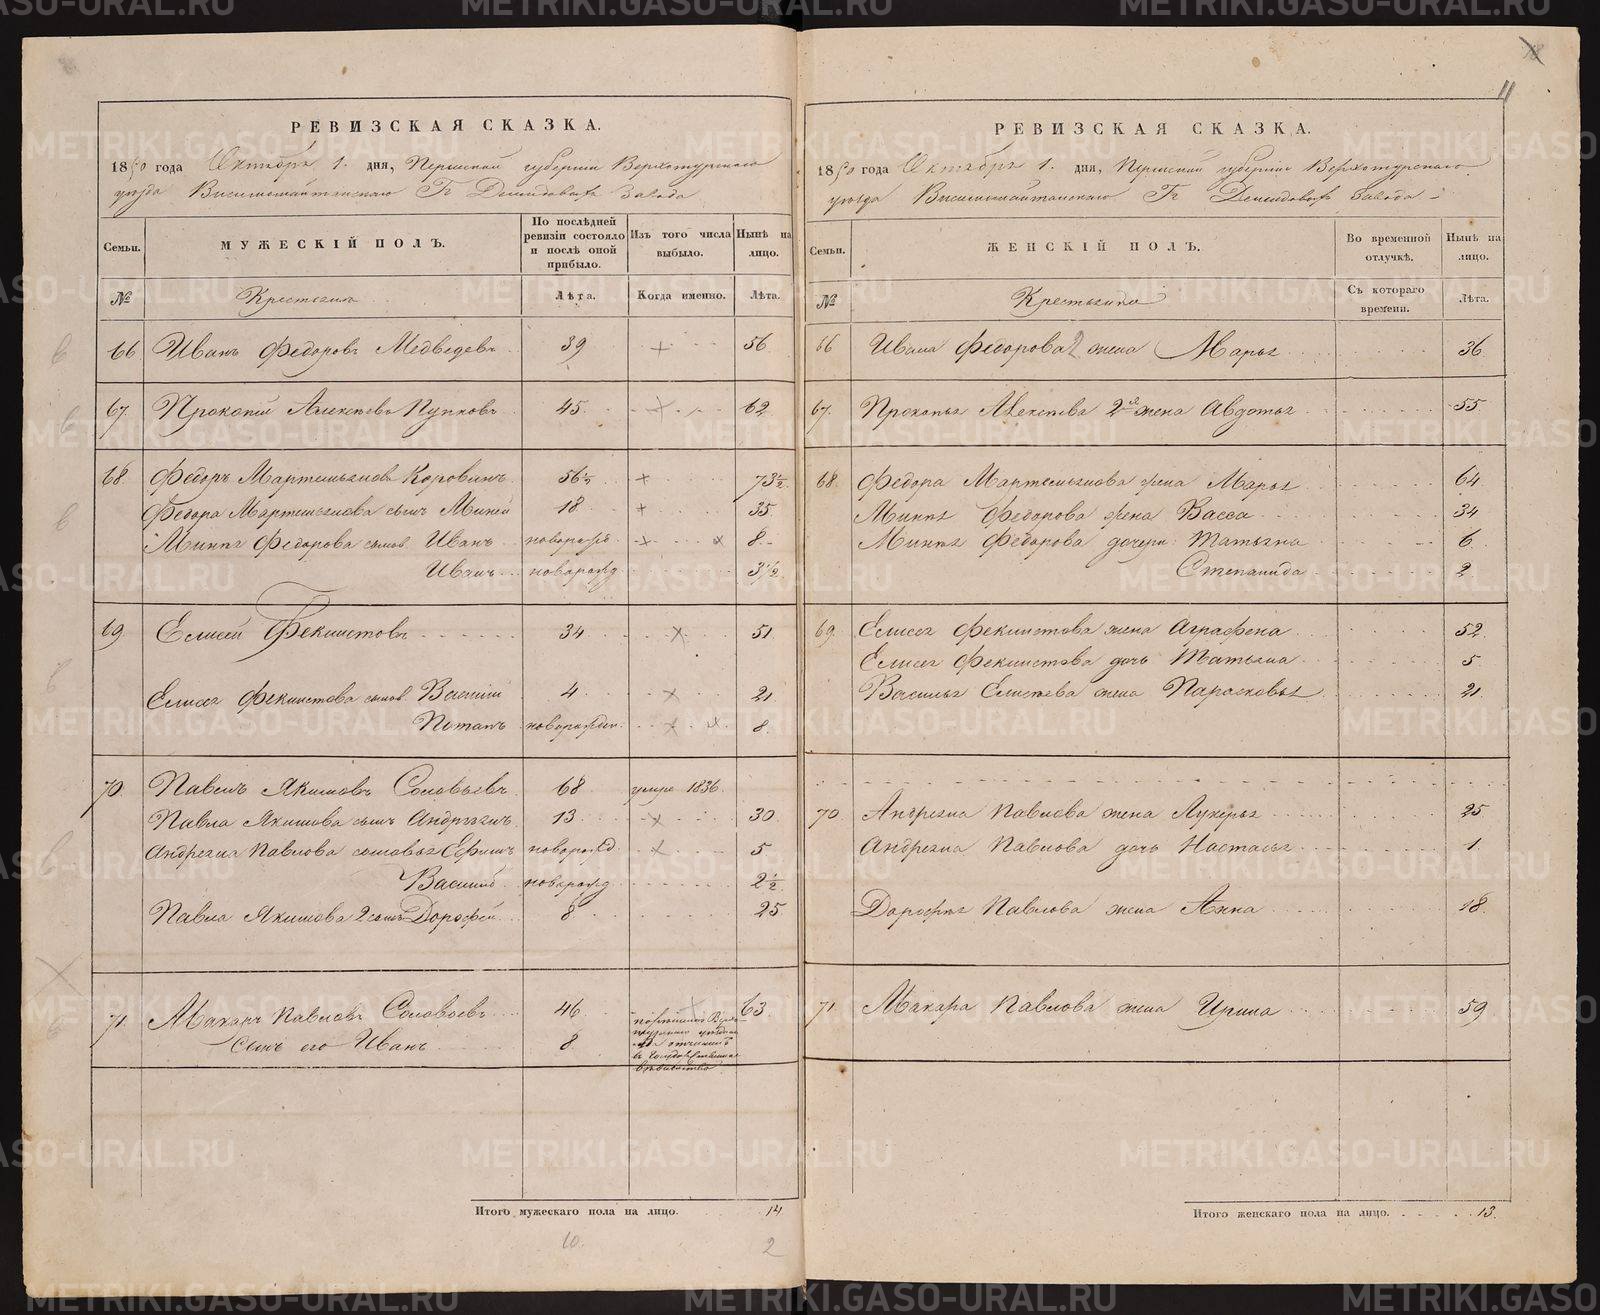 11
РЕВИЗСКАЯ СКАЗКА.
1850 года Октября 1. дня, Пермской губернии Верхотурскаго
уезда Висимошайтанскаго Гг Демидовыхъ завода
Семьи.
МУЖЕСКІЙ ПОЛЪ.
По послѣдней ревизіи состояло и послѣ оной прибыло.
Изъ того числа выбыло.
Нынѣ на лицо.
№
Крестьянъ
Лѣта.
Когда именно.
Лѣта.
66 Иванъ Федоровъ Медведевъ 39 56
67. Прокопей Алексѣевъ Пупковъ 45. 62
68. Федоръ Мартемьяновъ Коровинъ 56½ 73½
Федора Мартемьянова сынъ Миней 18 35
Минѣя Федорова сынов. Иванъ новорожд. 8
Иванъ новорожд 3½
69. Елисей Фекистовъ 34 51
Елисея Фекистова сынов Василій 4 21
Потапъ новорожден. 8
70. Павелъ Якимовъ Соловьевъ 68 умре 1836
Павла Якимова сынъ Андреянъ 13 30
Андреяна Павлова сыновья Ефимъ новорожд. 5
Василій новорожд 2½
Павла Якимова 2 сынъ Дорофей 8 25
71. Макаръ Павловъ Соловьевъ 46 63
Сынъ его Иванъ 8
Итого мужескаго пола на лицо. 14
10. 2
РЕВИЗСКАЯ СКАЗКА.
1850 года Октября 1. дня, Пермской губерніи Верхотурскаго
уезда Висимошайтанскаго Гг Демидовыхъ завода
Семьи.
ЖЕНСКІЙ ПОЛЪ.
Во временной отлучкѣ.
Нынѣ на лицо.
№
Съ котораго времени.
Лѣта.
66 Ивана Федорова 2 жена Марья 36
67. Прокопья Алексѣева 2я жена Авдотья 55
68. Федора Мартемьянова жена Марья 64
Минѣя Федорова жена Васса 34
Минѣя Федорова дочери Татьяна 6
Степанида 2
69. Елисея Фекистова жена Аграфена 52
Елисея Фекистова дочь Татьяна 5
Василья Елисѣева жена Парасковья 21
70. Андреяна Павлова жена Лукерья 25
Андреяна Павлова дочь Настасья 1
Дорофѣя Павлова жена Анна 18.
71. Макара Павлова жена Ирина 59
Итого женскаго пола на лицо. 13.
METRIKI.GASO-URAL.RU